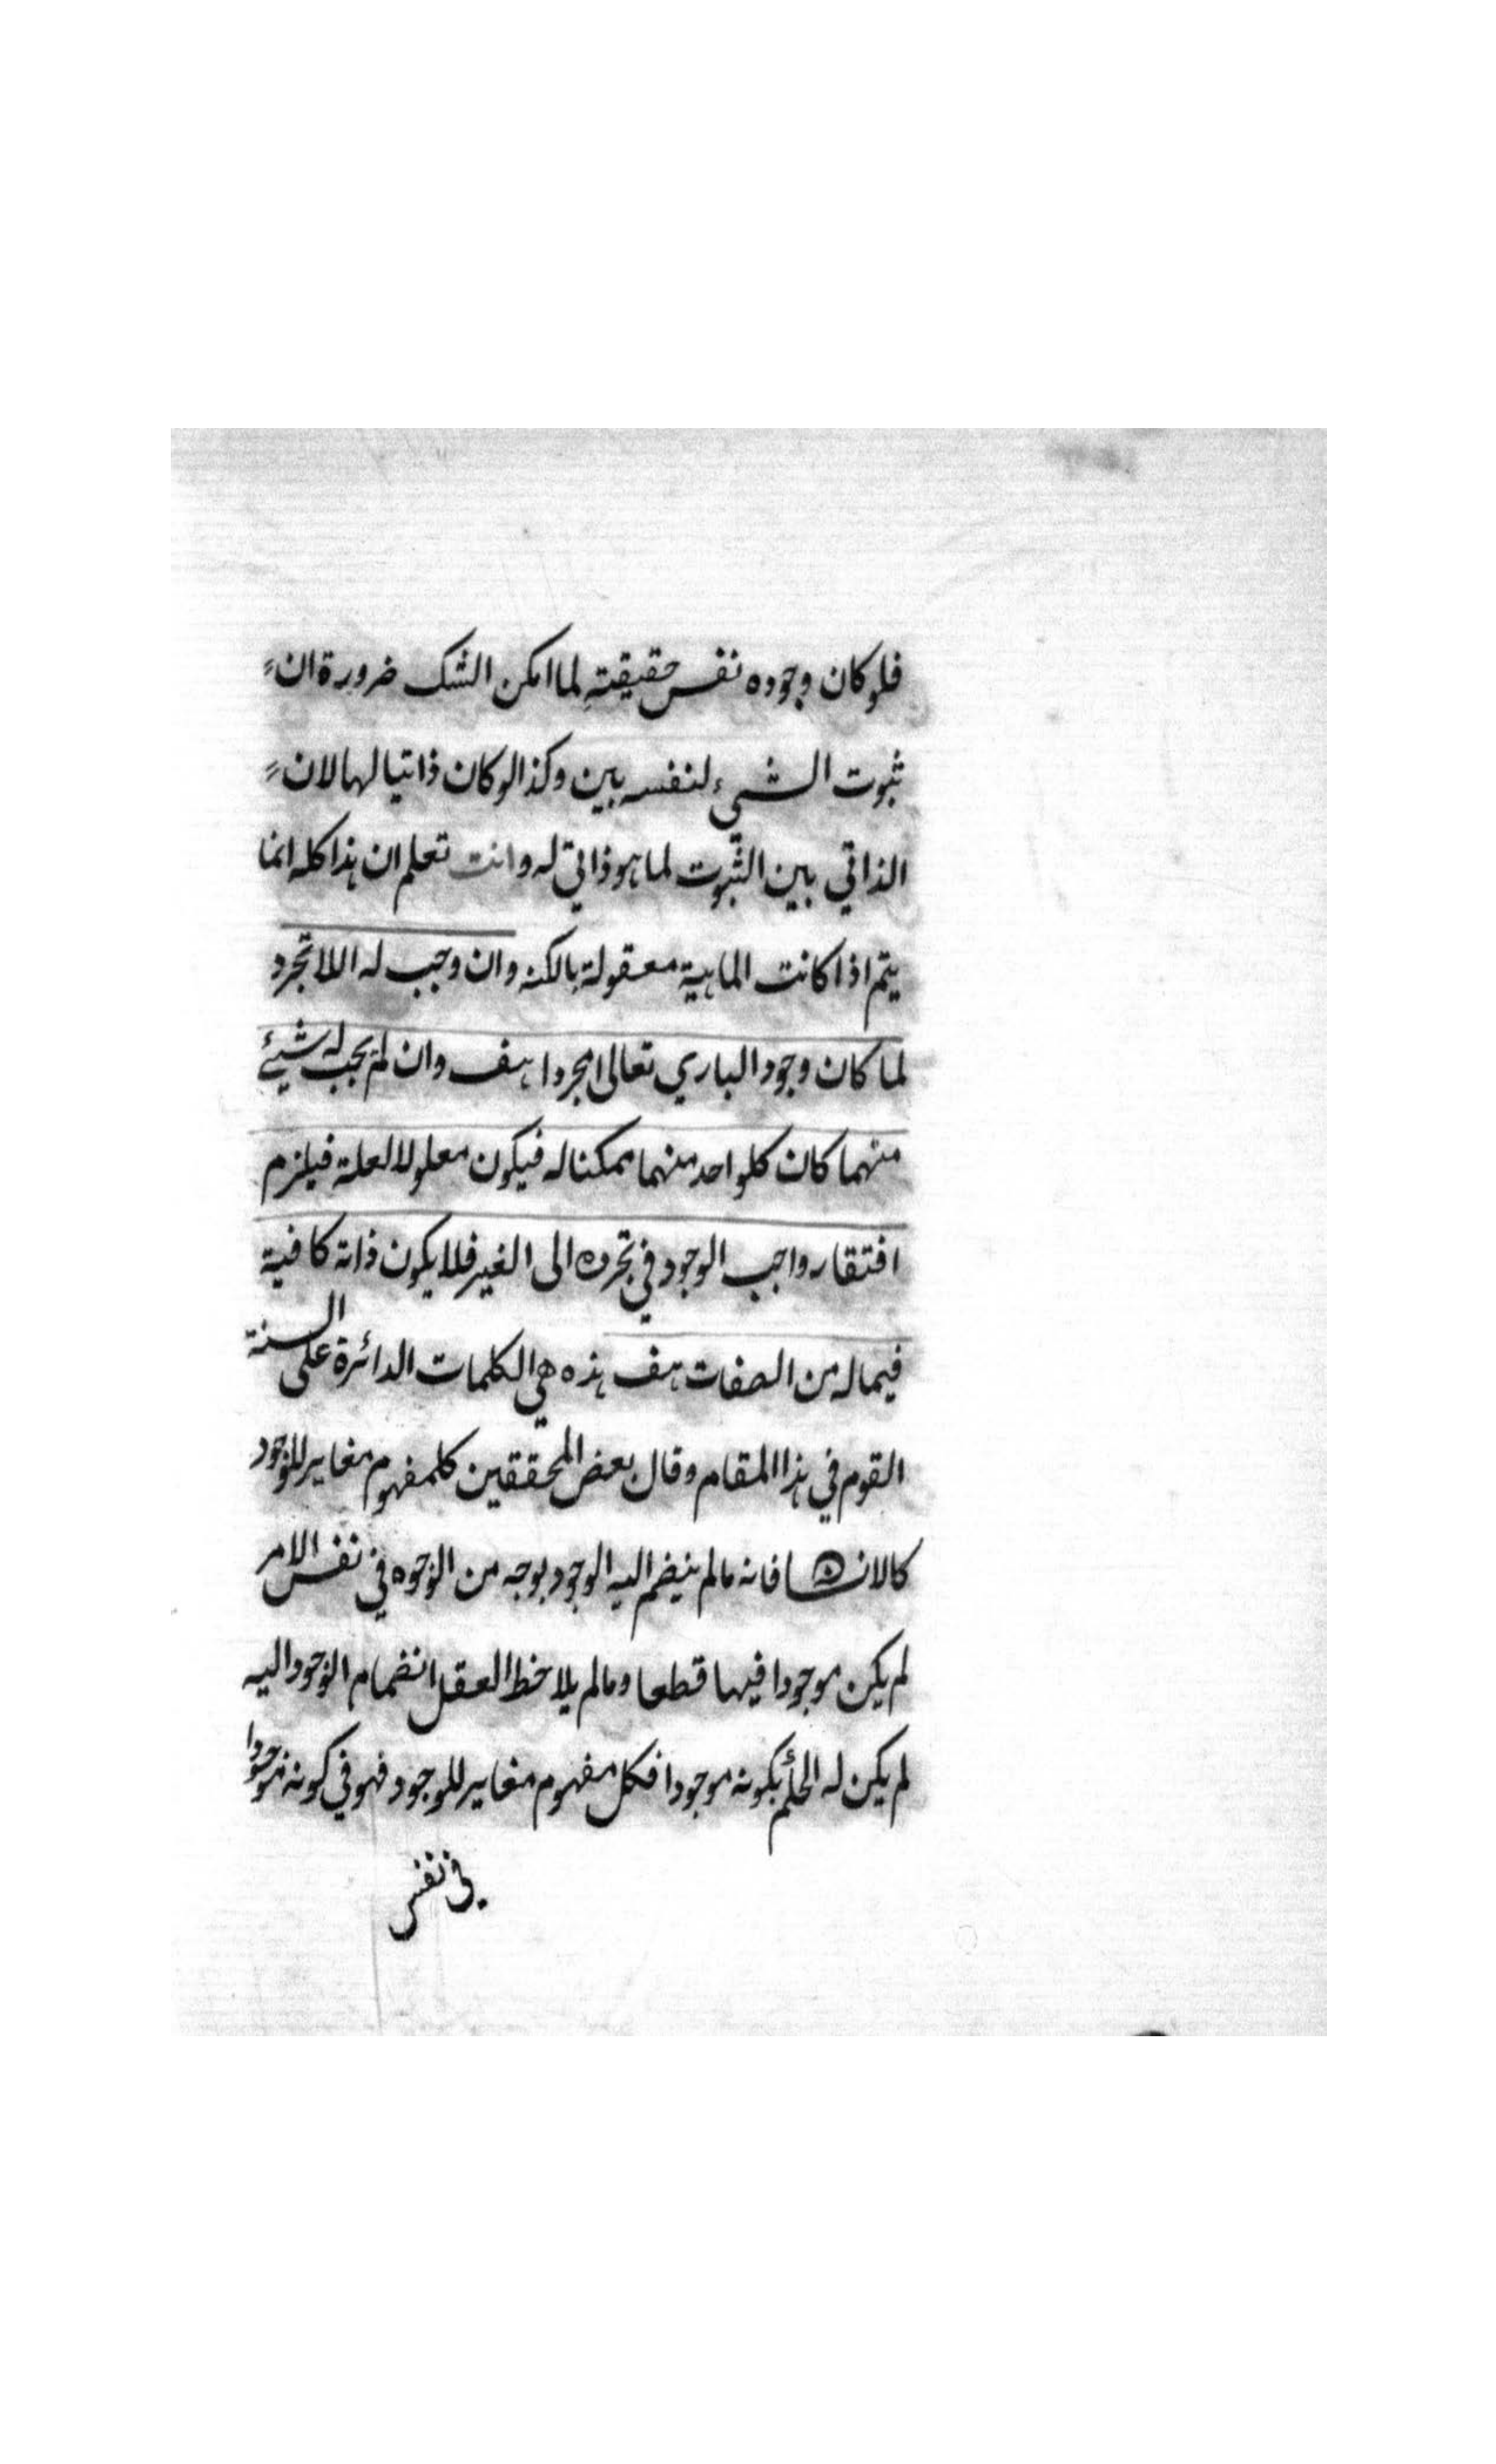 فلو كان وجوده نفس حقيقته لما امكن الشك ضرورة ان
ثبوت الشيء لنفسه بين وكذا لو كان ذاتيا لها لان
الذاتي بين الثبوت لما هو ذاتي له وانت تعلم ان هذا كله انما
يتم اذا كانت الماهية معقولة بالكنه وان وجب له اللا تجرد
لما كان وجود الباري تعالى مجردا هف وان لم يجب له شيئ
منهما كان كلواحد منهما ممكنا له فيكون معلولا لعلة فيلزم
افتقار واجب الوجود في تجرده الى الغير فلا يكون ذاته كافية
فيما له من الصفات هف هذه هي الكلمات الدائرة على السنة
القوم في هذا المقام وقال بعض المحققين كلمفهوم مغاير للوجود
كالانسان فانه مالم ينضم اليه الوجود بوجه من الوجوه في نفس الامر
لم يكن موجودا فيها قطعا ومالم يلاحظ العقل انضمام الوجود اليه
لم يكن له الحكم بكونه موجودا فكل مفهوم مغاير للوجود فهو في كونه موجودا
في نفس